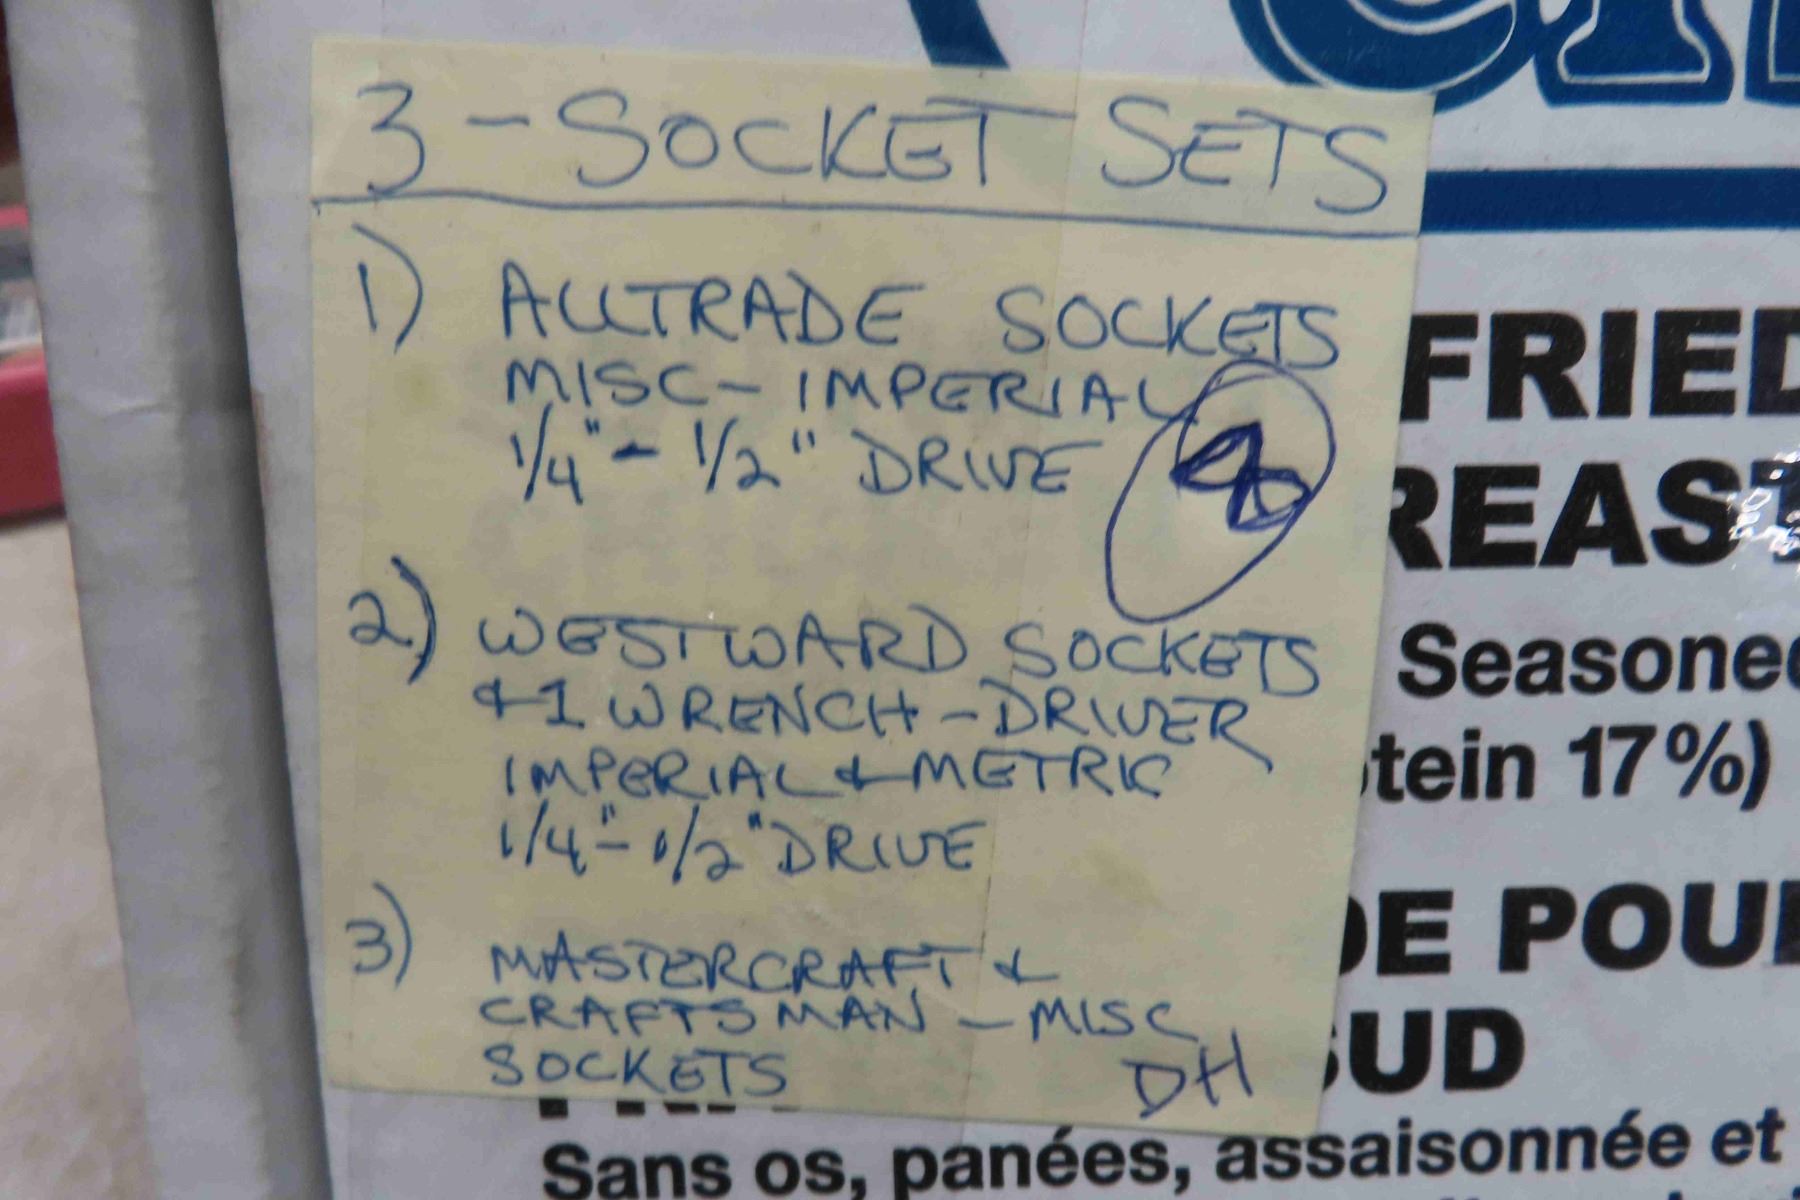 3 - SOCKET SETS
1) ALLTRADE SOCKETS
MISC - IMPERIAL
1/4" - 1/2" DRIVE
8
2) WESTWARD SOCKETS
& 1 WRENCH - DRIVER
IMPERIAL & METRIC
1/4" - 1/2" DRIVE
3) MASTERCRAFT &
CRAFTSMAN - MISC
SOCKETS
DH
FRIED
REAST
Seasoned
tein 17%)
DE POUL
SUD
Sans os, panées, assaisonnée et